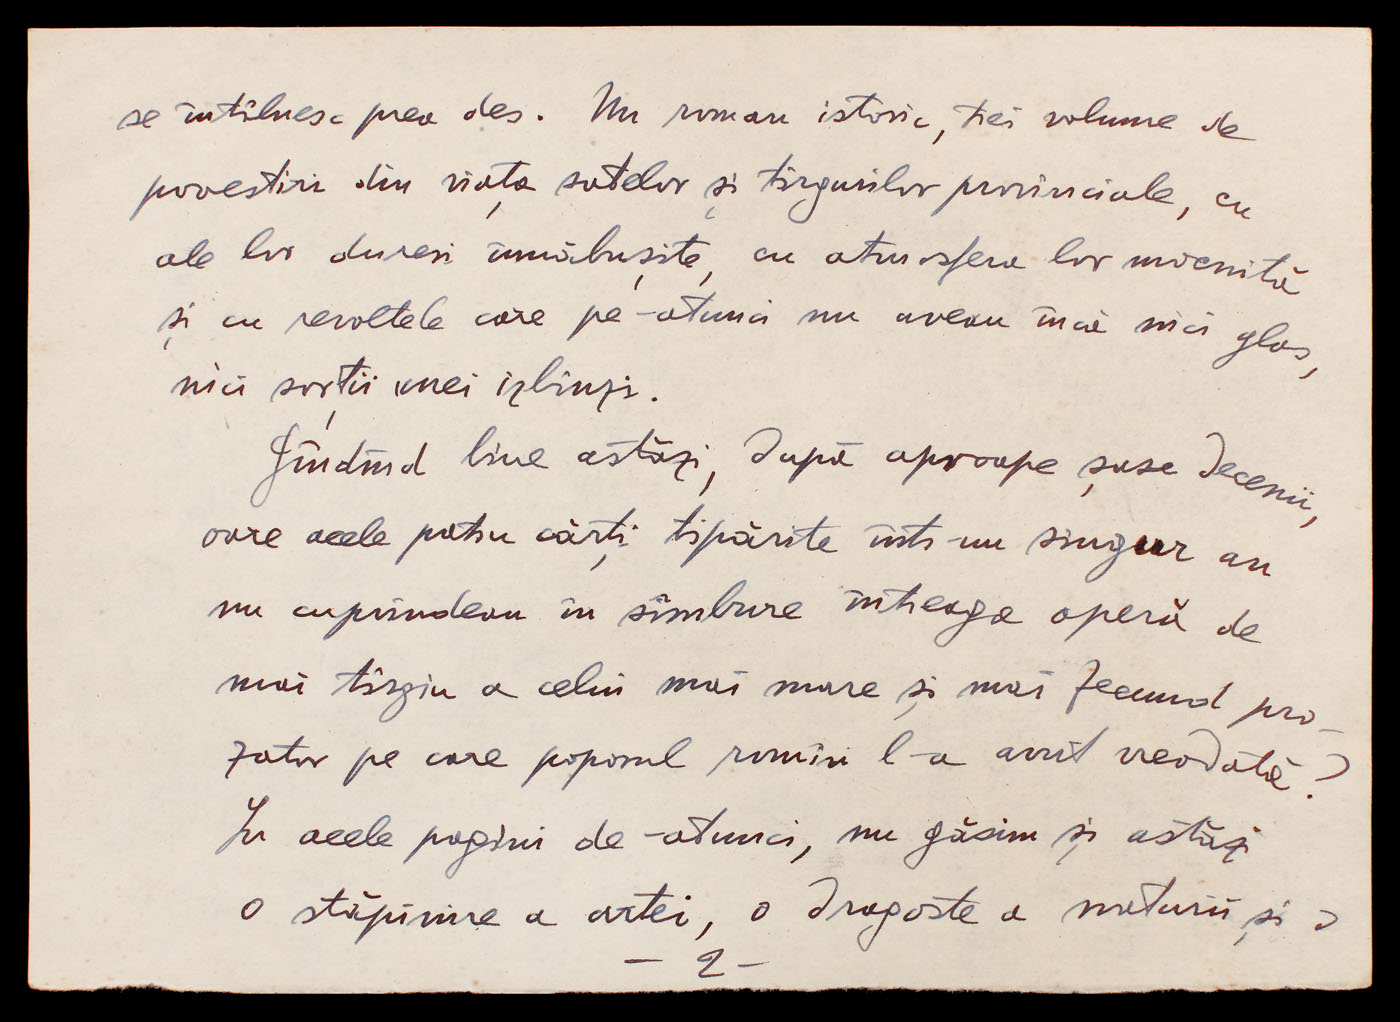 se întîlnesc prea des. Un roman istoric, trei volume de
povestiri din viața satelor și tîrgurilor provinciale, cu
ale lor dureri înnăbușite, cu atmosfera lor mocnită
și cu revoltele care pe-atunci nu aveau încă nici glas,
nici sorții unei izbînzi.
Gîndind bine astăzi, după aproape șase decenii,
oare acele patru cărți tipărite într-un singur an
nu cuprindeau în sîmbure întreaga operă de
mai tîrziu a celui mai mare și mai fecund pro-
zator pe care poporul romîn l-a avut vreodată?
In acele pagini de-atunci, nu găsim și astăzi
o stăpînire a artei, o dragoste a naturii și a
- 2 -